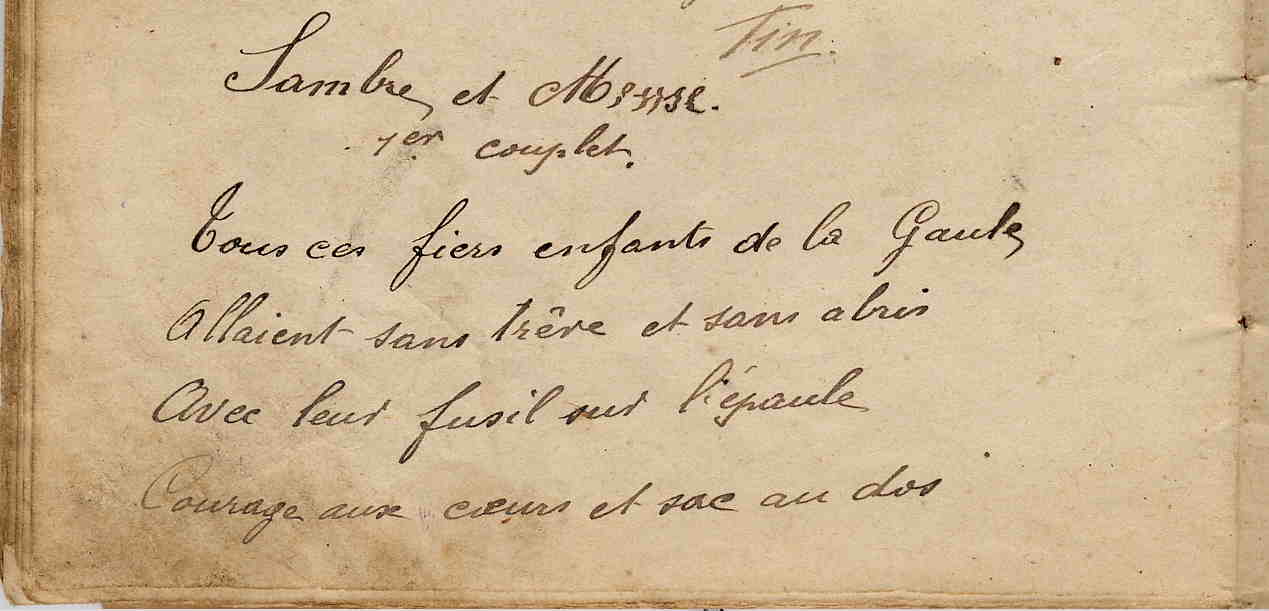 Fin.
Sambre et Meuse.
1er couplet.
Tous ces fiers enfants de la Gaule
Allaient sans trêve et sans abris
Avec leur fusil sur l'épaule
Courage aux cœurs et sac au dos